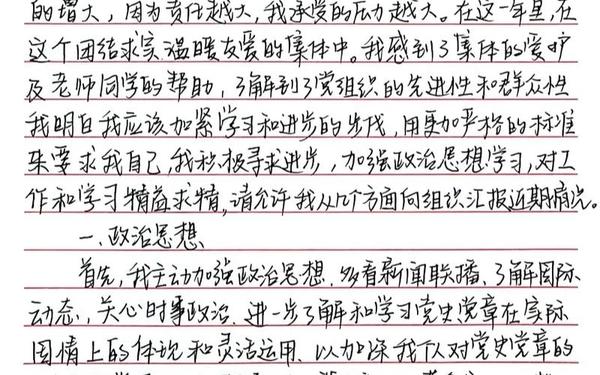 的增大，因为责任越大，我承受的压力越大。在这一年里，在
这个团结求实温暖友爱的集体中。我感到了集体的爱护
及老师同学的帮助，了解到了党组织的先进性和群众性
我明白我应该加紧学习和进步的步伐，用更加严格的标准
来要求我自己，我积极寻求进步，加强政治思想学习，对工
作和学习精益求精，请允许我从几个方面向组织汇报近期情况。
一、政治思想
首先，我主动加强政治思想，多看新闻联播、了解国际
动态，关心时事政治、进一步了解和学习党史党章在实际
国情上的体现和灵活运用、以加深我个人对党史党章的